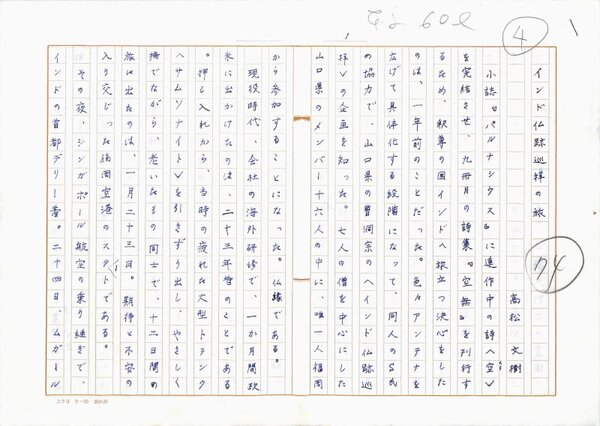 1
④
タテ 60ℓ
74
インド仏跡巡拝の旅
高松 文樹
小誌『パルナシウス』に連作中の詩〈空〉
を完結させ、九冊目の詩集『空無』を刊行す
るため、釈尊の国インドへ旅立つ決心をした
のは、一年前のことだった。色々アンテナを
広げて具体化する段階になって、同人のS氏
の協力で、山口県の曹洞宗の〈インド仏跡巡
拝〉の企画を知った。七人の僧を中心にした
山口県のメンバー十六人の中に、唯一人福岡
から参加することになった。仏縁である。
現役時代、会社の海外研修で、一か月間欧
米に出かけたのは、二十三年昔のことである
。押し入れから、当時の疲れた大型トランク
〈サムソナイト〉を引きずり出し、やさしく
撫でながら、老いたもの同士で、十二日間の
旅に出たのは、一月二十三日。期待と不安の
入り交じった福岡空港のスタートである。
その夜、シンガポール航空の乗り継ぎで、
インドの首都デリー着。二十四日、ムガール
コクヨ ケ-20 20×20